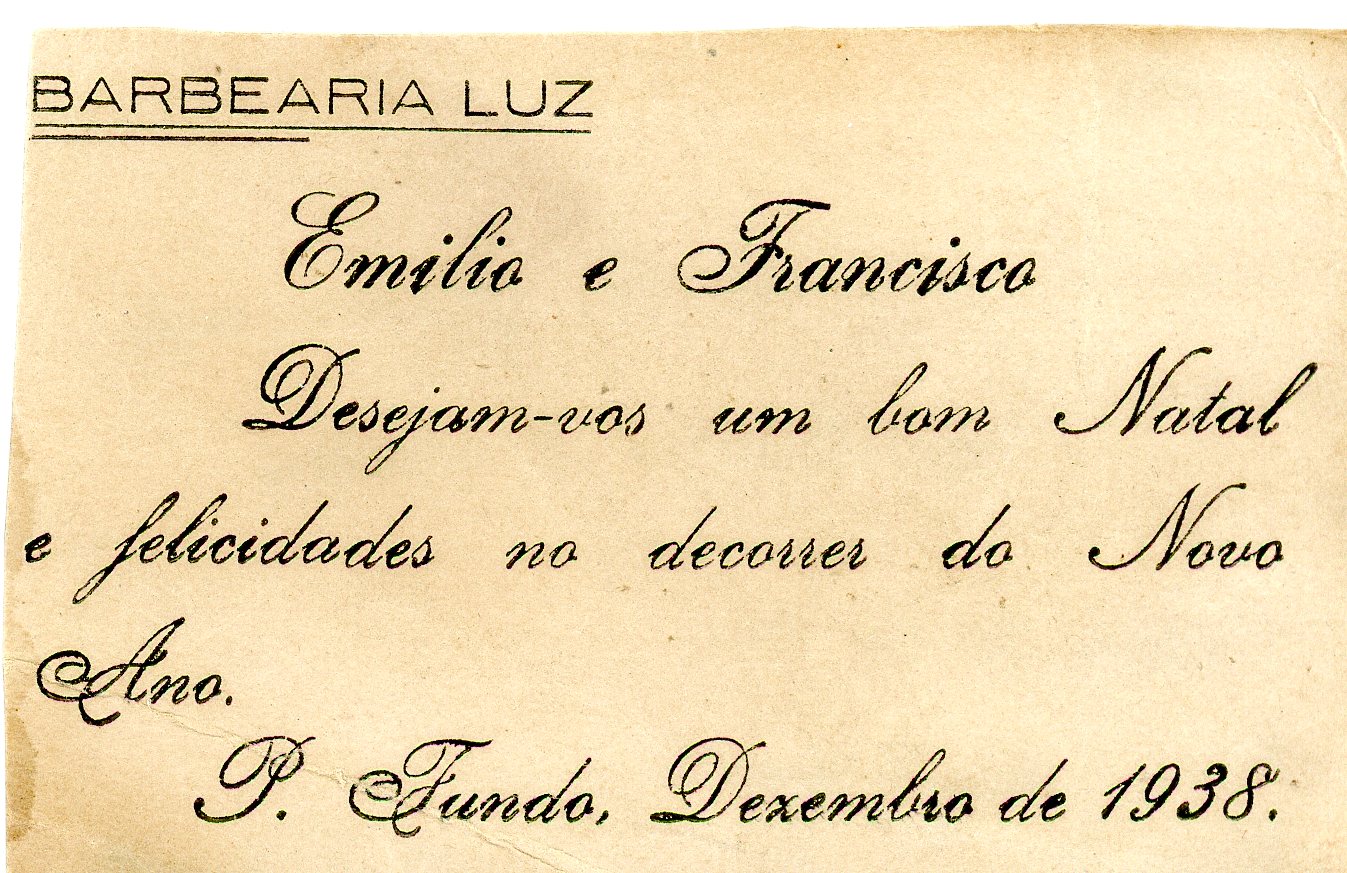 BARBEARIA LUZ
Emilio e Francisco
Desejam-vos um bom Natal
e felicidades no decorrer do Novo
Ano.
P. Fundo, Dezembro de 1938.